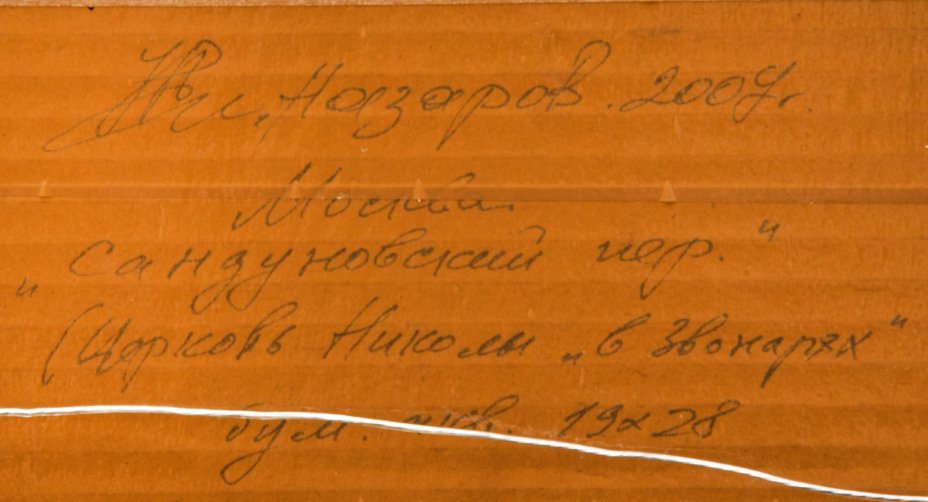 Назаров. 2004г.
Москва.
"Сандуновский пер."
(Церковь Николы „в Звонарях"
бум. акв. 19x28